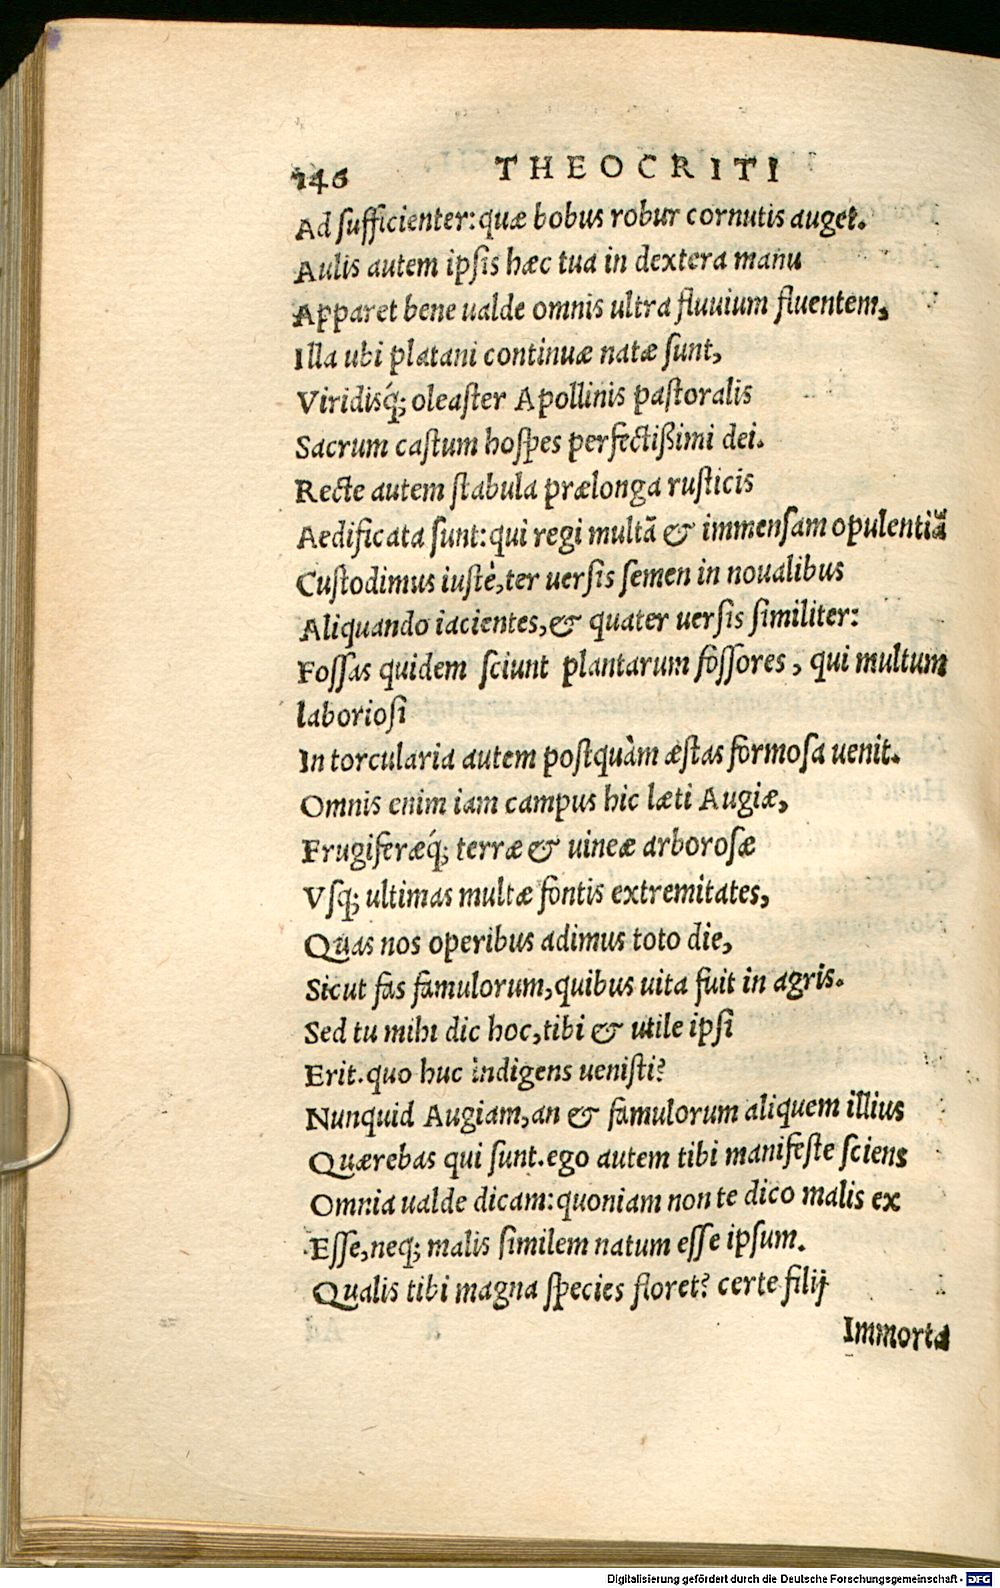 146 THEOCRITI
Ad sufficienter: quæ bobus robur cornutis auget.
Aulis autem ipsis hæc tua in dextera manu
Apparet bene ualde omnis ultra fluuium fluentem,
Illa ubi platani continuæ natæ sunt,
Viridisq́; oleaster Apollinis pastoralis
Sacrum castum hospes perfectißimi dei.
Recte autem stabula prælonga rusticis
Aedificata sunt: qui regi multā & immensam opulentiā
Custodimus iustè, ter uersis semen in noualibus
Aliquando iacientes, & quater uersis similiter:
Fossas quidem sciunt plantarum fossores, qui multum
laboriosi
In torcularia autem postquàm æstas formosa uenit.
Omnis enim iam campus hic læti Augiæ,
Frugiferæq́; terræ & uineæ arborosæ
Vsq; ultimas multæ fontis extremitates,
Quas nos operibus adimus toto die,
Sicut fas famulorum, quibus uita fuit in agris.
Sed tu mihi dic hoc, tibi & utile ipsi
Erit. quo huc indigens uenisti?
Nunquid Augiam, an & famulorum aliquem illius
Quærebas qui sunt. ego autem tibi manifeste sciens
Omnia ualde dicam: quoniam non te dico malis ex
Esse, neq; malis similem natum esse ipsum.
Qualis tibi magna species floret? certe filij
Immorta
Digitalisierung gefördert durch die Deutsche Forschungsgemeinschaft - DFG